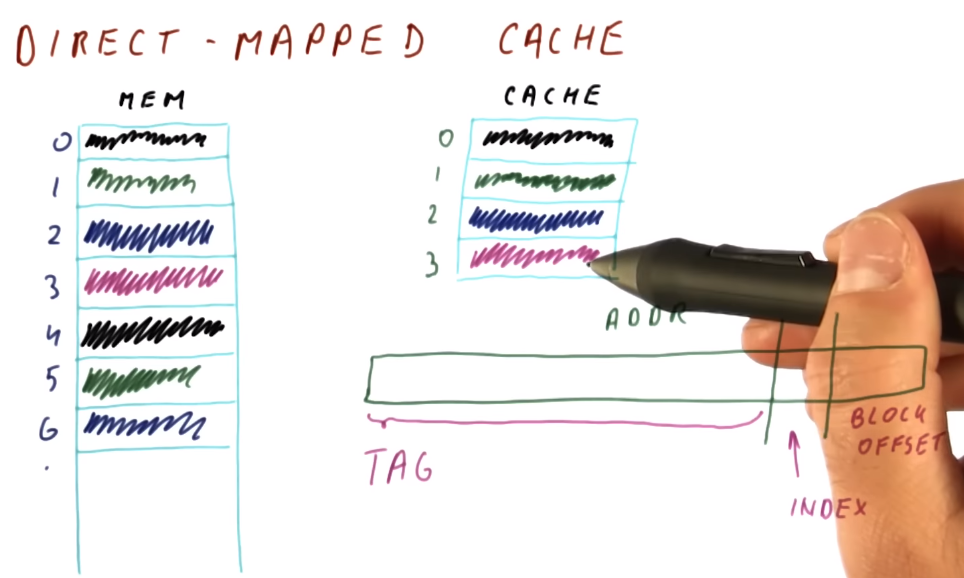 DIRECT - MAPPED CACHE
MEM
0
1
2
3
4
5
6
.
CACHE
0
1
2
3
ADDR
TAG
INDEX
BLOCK
OFFSET